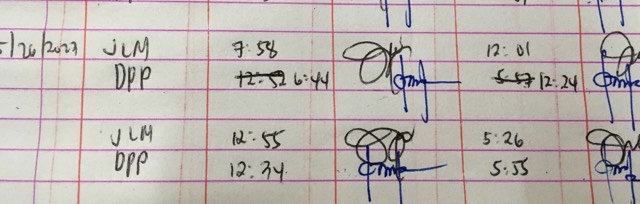 5/26/2023 JLM 7:58 12:01
DPP 12:52 6:44 5:57 12:24
JLM 12:55 5:26
DPP 12:34 5:55